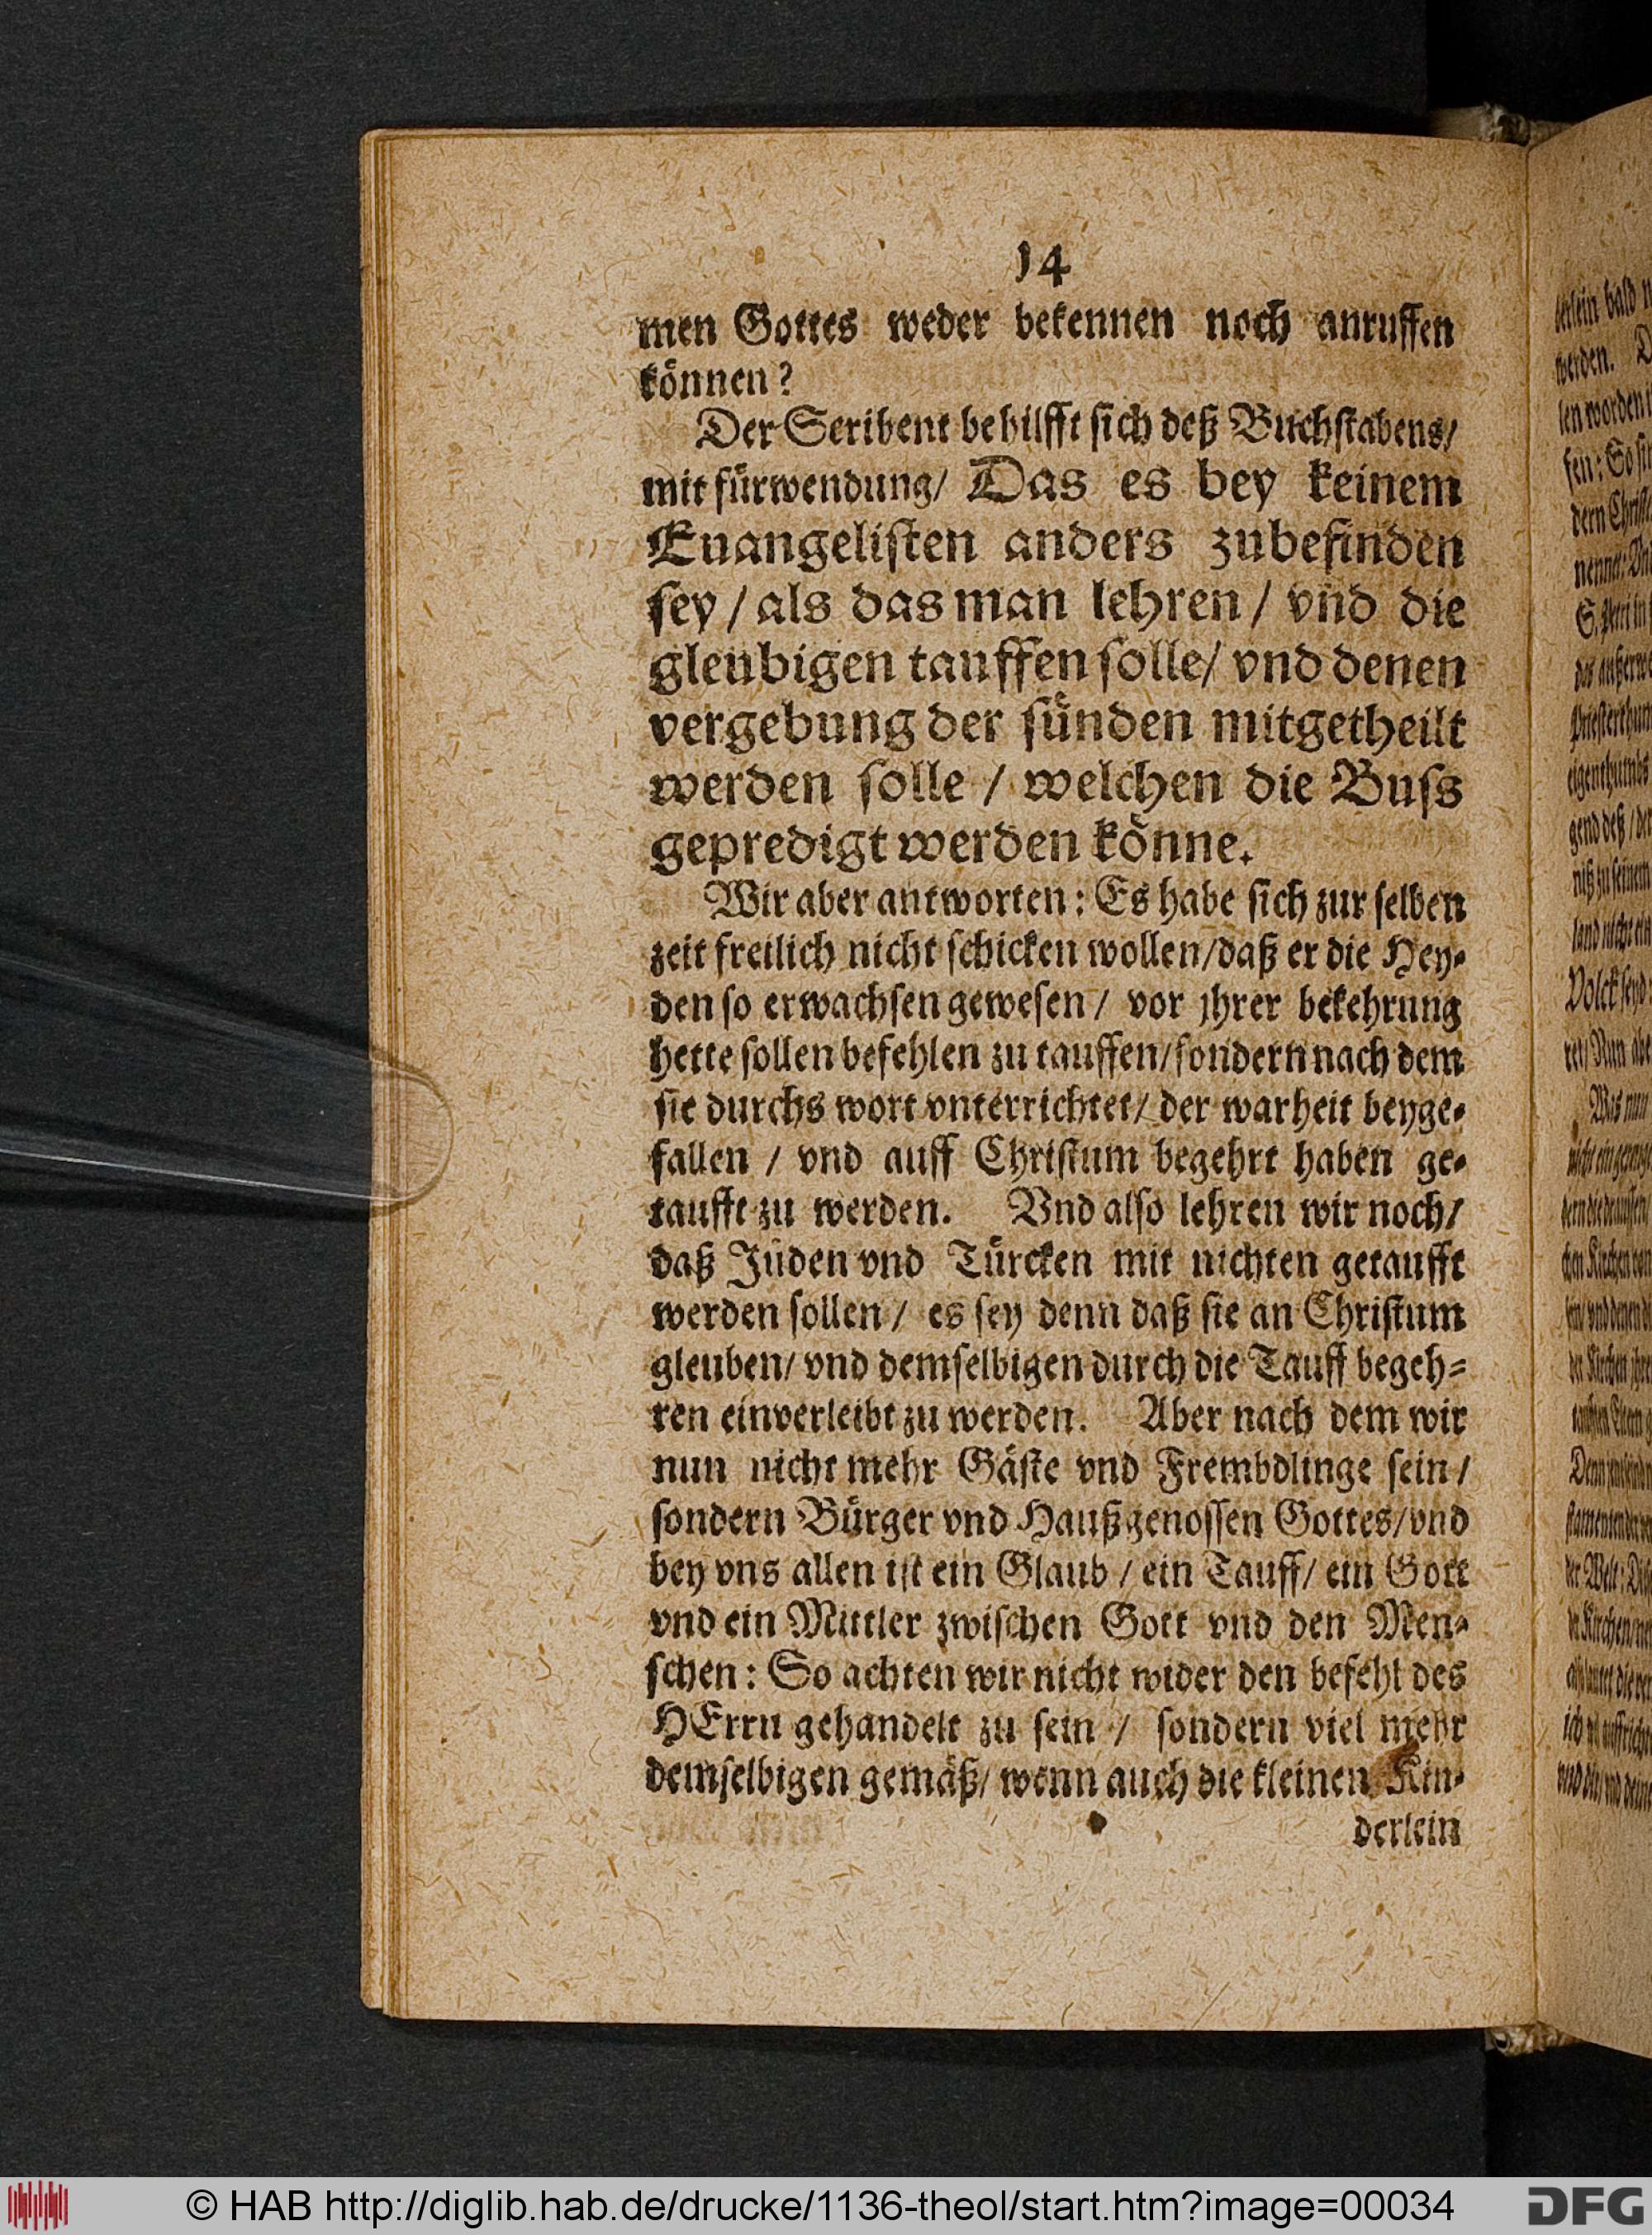 14
men Gottes weder bekennen noch anruffen
können?
Der Scribent behilfft sich deß Buchstabens/
mit fürwendung/ Das es bey keinem
Euangelisten anders zubefinden
sey / als das man lehren / vnd die
gleubigen tauffen solle/ vnd denen
vergebung der sünden mitgetheilt
werden solle / welchen die Buss
gepredigt werden könne.
Wir aber antworten: Es habe sich zur selben
zeit freilich nicht schicken wollen/daß er die Hey-
den so erwachsen gewesen / vor jhrer bekehrung
hette sollen befehlen zu tauffen/sondern nach dem
sie durchs wort vnterrichtet/ der warheit beyge-
fallen / vnd auff Christum begehrt haben ge-
taufft zu werden. Vnd also lehren wir noch/
daß Jüden vnd Türcken mit nichten getaufft
werden sollen / es sey denn daß sie an Christum
gleuben/ vnd demselbigen durch die Tauff begeh-
ren einverleibt zu werden. Aber nach dem wir
nun nicht mehr Gäste vnd Frembdlinge sein /
sondern Bürger vnd Haußgenossen Gottes/vnd
bey vns allen ist ein Glaub / ein Tauff/ ein Gott
vnd ein Mittler zwischen Gott vnd den Men-
schen: So achten wir nicht wider den befehl des
HErrn gehandelt zu sein / sondern viel mehr
demselbigen gemäß/ wenn auch die kleinen Kin-
derlein
© HAB http://diglib.hab.de/drucke/1136-theol/start.htm?image=00034
DFG